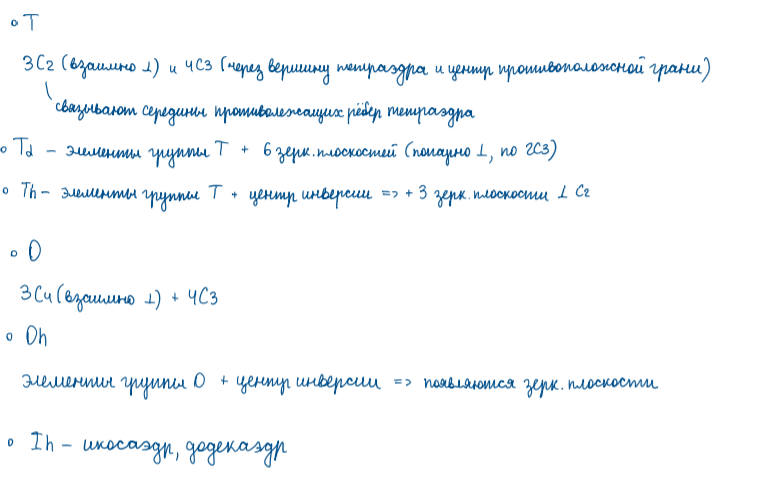 ∘ T
3C₂ (взаимно ⊥) и 4C3 (через вершину тетраэдра и центр противоположной грани)
связывают середины противолежащих рёбер тетраэдра
∘ Td – элементы группы T + 6 зерк. плоскостей (попарно ⊥, по 2C3)
∘ Th – элементы группы T + центр инверсии => + 3 зерк. плоскости ⊥ C₂
∘ O
3C₄ (взаимно ⊥) + 4C3
∘ Oh
элементы группы O + центр инверсии => появляются зерк. плоскости
∘ Ih – икосаэдр, додекаэдр